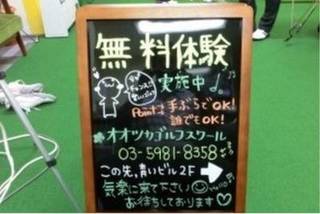 無料体験
実施中♪
Pointは手ぶらでOK!
誰でもOK!
オオツカゴルフスクール
03-5981-8358
この先,青いビル2F
気楽に来て下さい
お待ちしております♡